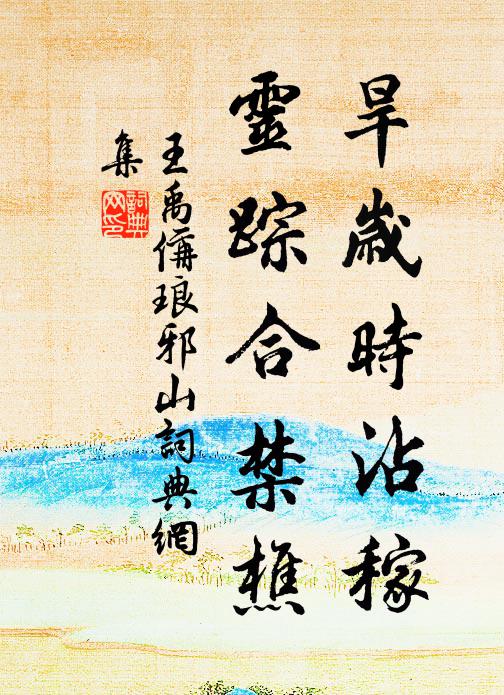 旱歲時沾稼
靈踪合禁樵
王禹偁琅邪山詞典網
集
詞典網印